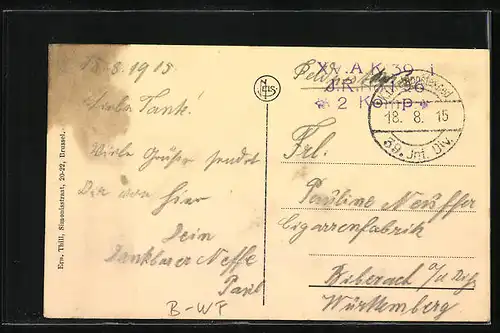 18.8.1915
Liebe Tante!
Viele Grüße sendet
Dir von hier
Dein
dankbarer Neffe
Paul
B-WF
Ern. Thill, Simonisstraat, 20-22, Brussel.
Feldpost
XV. A.K. 39.
J.R. No
2 Komp
18. 8. 15
39. Jnf. Div.
Frl.
Pauline Neuffer
Cigarrenfabrik
Biberach a/d Riß
Württemberg